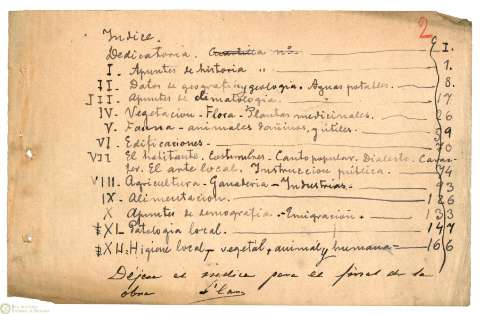 2
Indice.
Dedicatoria. I.
I. Apuntes de historia " 1.
II. Datos de geografia y geologia. Aguas potables. 8.
III. Apuntes de climatologia. 17
IV. Vegetacion - Flora - Plantas medicinales. 26
V. Fauna - animales dañinos y útiles. 59
VI. Edificaciones. 70
VII El habitante. Costumbres. Canto popular. Dialecto. Carac-
ter. El arte local. Instruccion pública. 74
VIII. Agricultura - Ganaderia - Industrias. 93
IX. Alimentacion. 126
X Apuntes de demografia. Emigración. 133
XI. Patologia local. 147
XII. Higiene local, vegetal, animal y humana 166
Déjese el indice para el final de la
obra